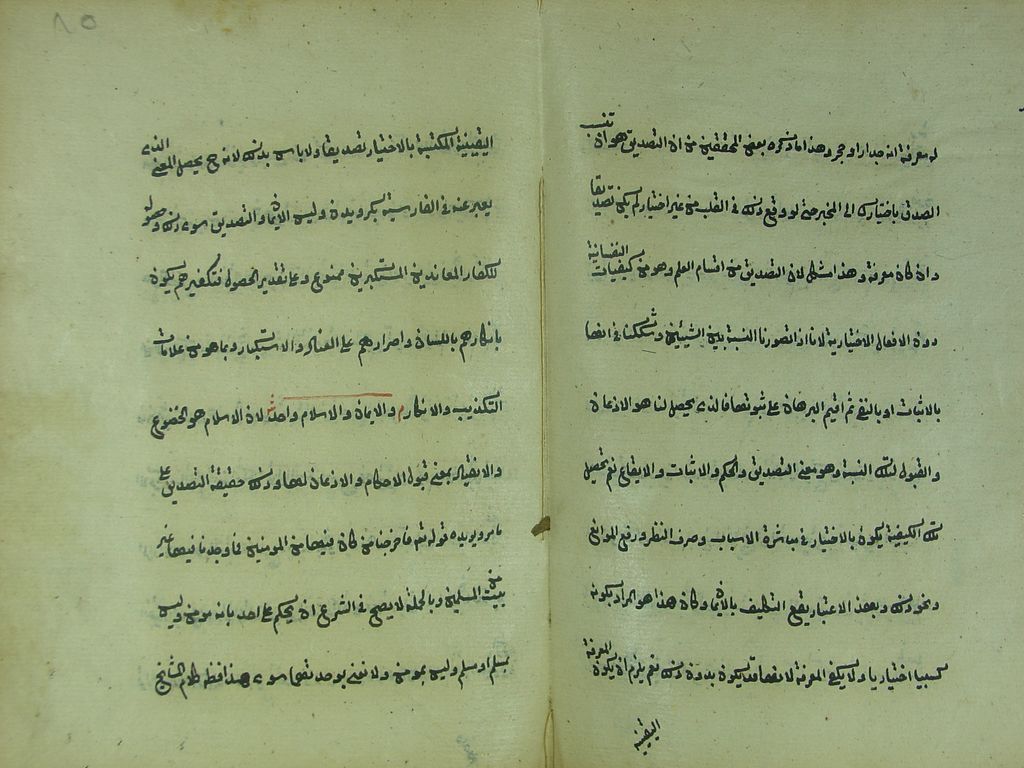 له معرفة انه جدار او حجر وهذا ما ذكره بعض المحققين من ان التصديق هو ان تنسب
الصدق باختيارك الى المخبر حتى لو وقع ذلك في القلب من غير اختيار لم يكن تصديقا
وان كان معرفة وهذا مشكل لان التصديق من اقسام العلم وهو من كيفيات النفسانية
دون الافعال الاختيارية لانا اذا تصورنا النسبة بين الشيئين وشككنا في انها
بالاثبات او بالنفي ثم اقيم البرهان على ثبوتها فالذي يحصل لنا هو الاذعان
والقبول لتلك النسبة وهو معنى التصديق والحكم والاثبات والايقاع نعم تحصيل
تلك الكيفية يكون بالاختيار في مباشرة الاسباب وصرف النظر ورفع الموانع
ونحو ذلك وبهذا الاعتبار يقع التكليف بالايمان وكان هذا هو المراد بكونه
كسبيا اختياريا ولا يكفي المعرفة لانها قد يكون بدون ذلك نعم يلزم ان يكون المعرفة
اليقينية
اليقينية المكتسبة بالاختيار تصديقا ولا باس بذلك لانه ح يحصل المعنى الذى
يعبر عنه في الفارسية بكرويدن وليس الايمان والتصديق سوى ذلك وحصوله
للكفار المعاندين المستكبرين ممنوع وعلى تقدير الحصول فتكفيرهم يكون
بانكارهم باللسان واصرارهم على العناد والاستكبار وبما هو من علامات
التكذيب والانكار م والايمان والاسلام واحد ش لان الاسلام هو الخضوع
والانقياد بمعنى قبول الاحكام والاذعان لها وذلك حقيقة التصديق على
ما مر ويويده قوله تعه فاخرجنا من كان فيها من المومنين فما وجدنا فيها غير
بيت من المسلمين وبالجملة لا يصح في الشرع ان يحكم على احد بانه مومن وليس
بمسلم او مسلم وليس بمومن ولا نعني بوحدتهما سوى هذا فظ كلام المشايخ